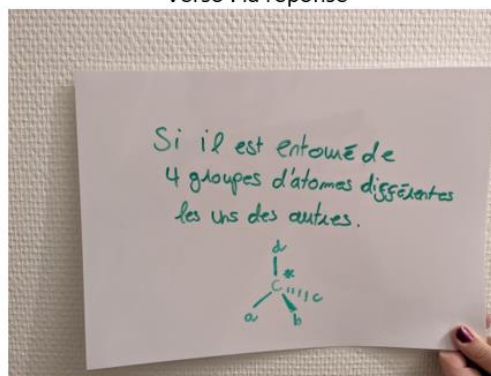 Verso : la réponse
Si il est entouré de
4 groupes d'atomes différentes
les uns des autres.
d
C*
a b c